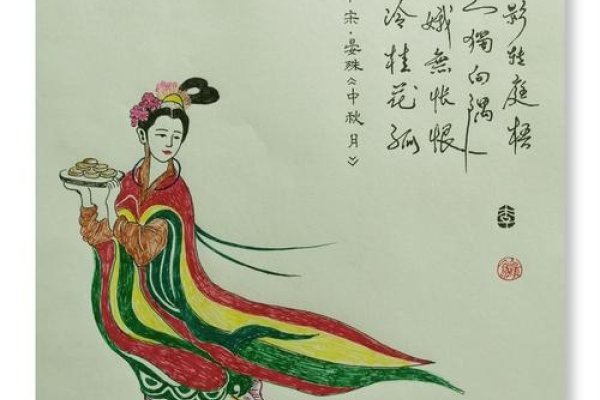 影转庭梧
人獨向隅
娥無悵恨
冷桂花孤
宋·晏殊《中秋月》